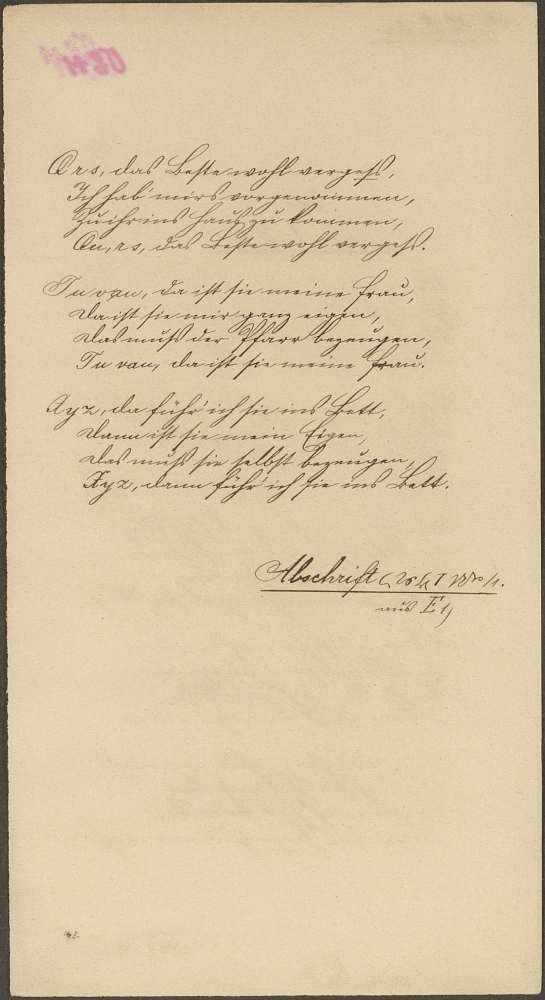 Q r s, das Beste wohl vergeß,
Ich hab' mirs vorgenommen,
Zu ihr ins Haus zu kommen,
Qu, r s, das Beste wohl vergeß.
Tu vau, da ist sie meine Frau,
Da ist sie mir ganz eigen,
Das muß der Pfarr bezeugen,
Tu vau, da ist sie meine Frau.
Xyz, da führ' ich sie ins Bett,
Dann ist sie mein Eigen,
Das muß sie selbst bezeugen,
Xyz, dann führ' ich sie ins Bett.
Abschrift
aus E 1)